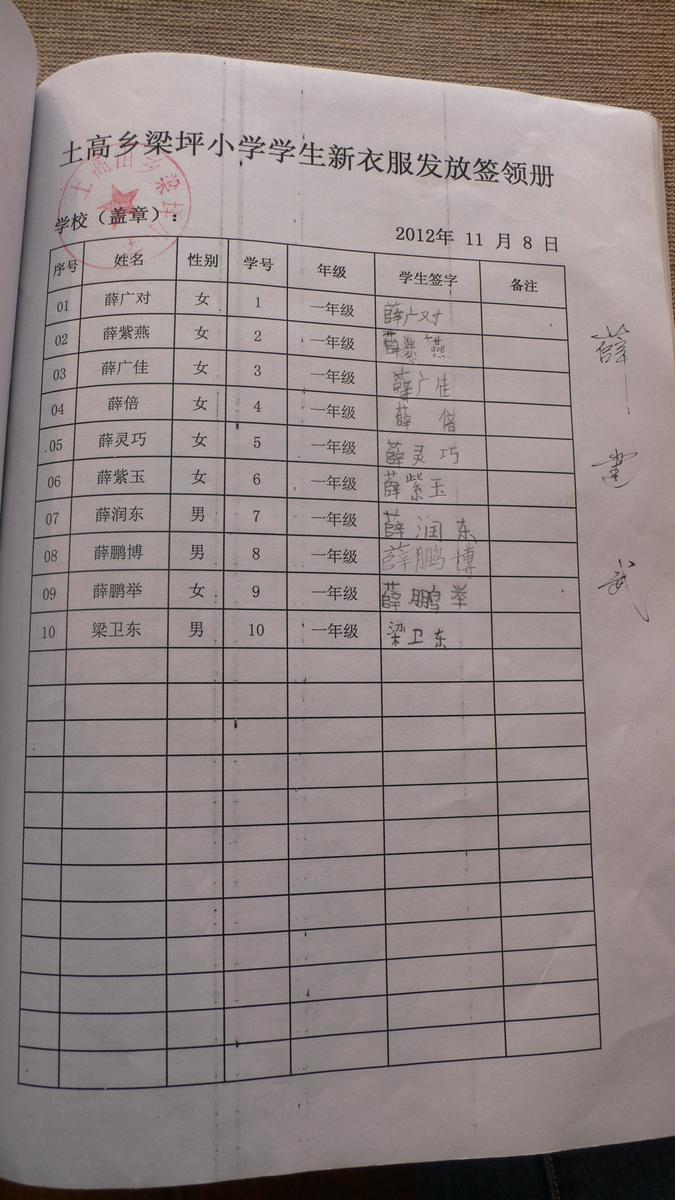 土高乡梁坪小学学生新衣服发放签领册
土高山乡梁坪小
学校（盖章）：
2012年 11 月 8 日
序号 姓名 性别 学号 年级 学生签字 备注
01 薛广对 女 1 一年级 薛广对
02 薛紫燕 女 2 一年级 薛紫燕
03 薛广佳 女 3 一年级 薛广佳
04 薛倍 女 4 一年级 薛倍
05 薛灵巧 女 5 一年级 薛灵巧
06 薛紫玉 女 6 一年级 薛紫玉
07 薛润东 男 7 一年级 薛润东
08 薛鹏博 男 8 一年级 薛鹏博
09 薛鹏举 女 9 一年级 薛鹏举
10 梁卫东 男 10 一年级 梁卫东
薛
武